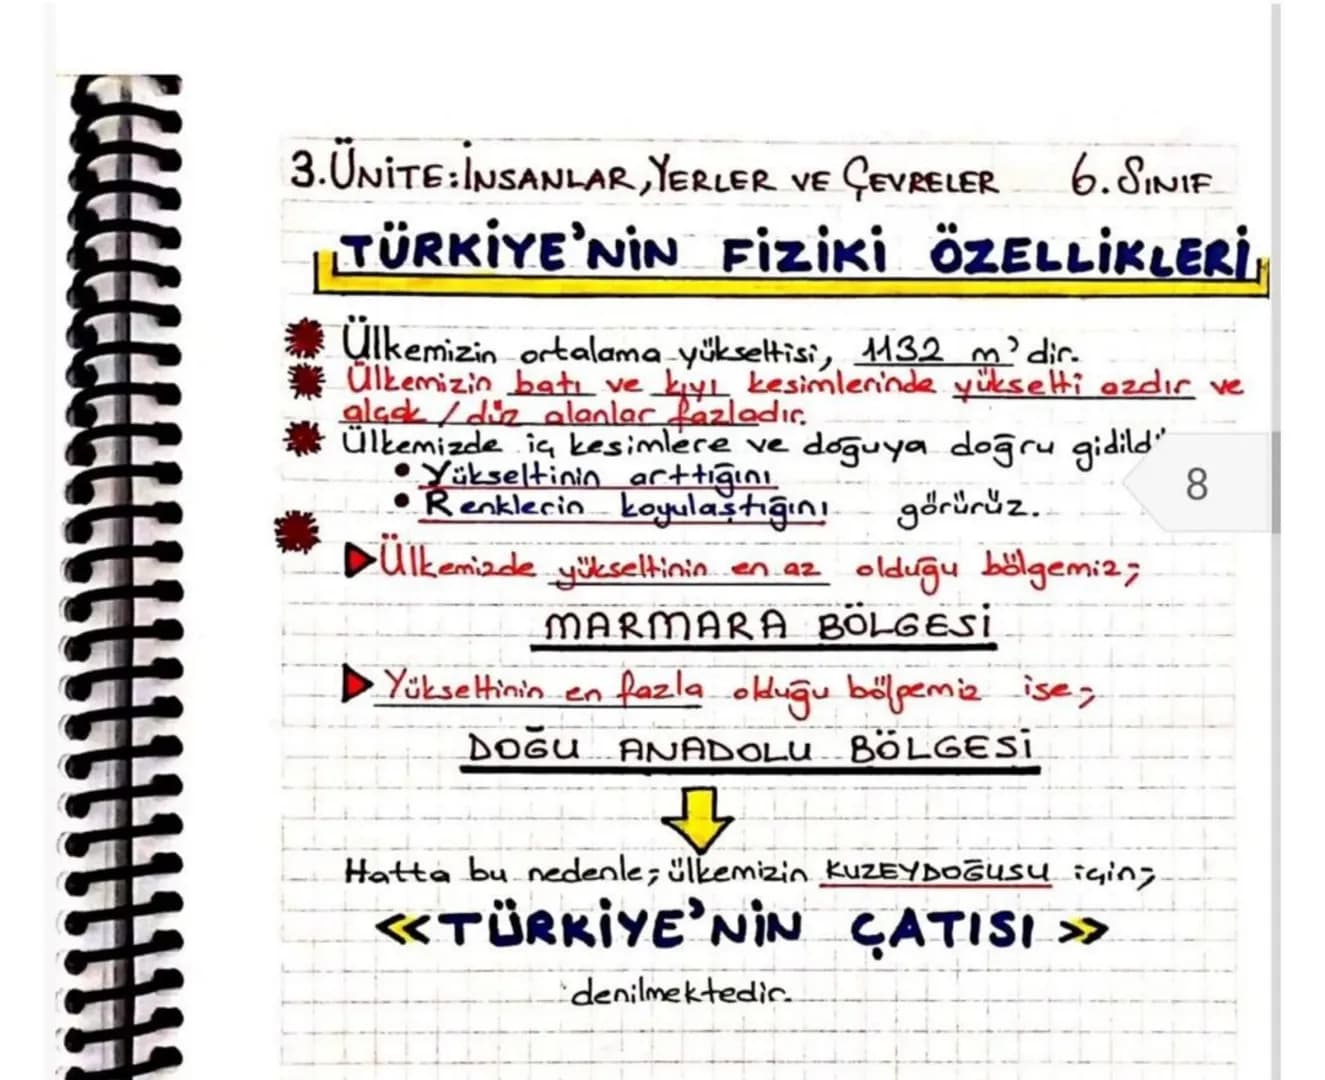 3.ÜNİTE:İNSANLAR,YERLER VE ÇEVRELER 6.SINIF
TÜRKİYE'NİN FİZİKİ ÖZELLİKLERİ
Ülkemizin ortalama yükseltisi, 1132 m'dir.
Ülkemizin batı ve kıyı kesimlerinde yükselti azdır ve
alçak / düz alanlar fazladır.
Ülkemizde iç kesimlere ve doğuya doğru gidild
• Yükseltinin arttığını
8
• Renklerin koyulaştığını görürüz.
Ülkemizde yükseltinin en az olduğu bölgemiz;
MARMARA BÖLGESİ
Yükseltinin en fazla olduğu bölgemiz ise;
DOĞU ANADOLU BÖLGESİ
Hatta bu nedenle; ülkemizin KUZEYDOĞUSU için;
«TÜRKİYE'NİN ÇATISI»
denilmektedir.